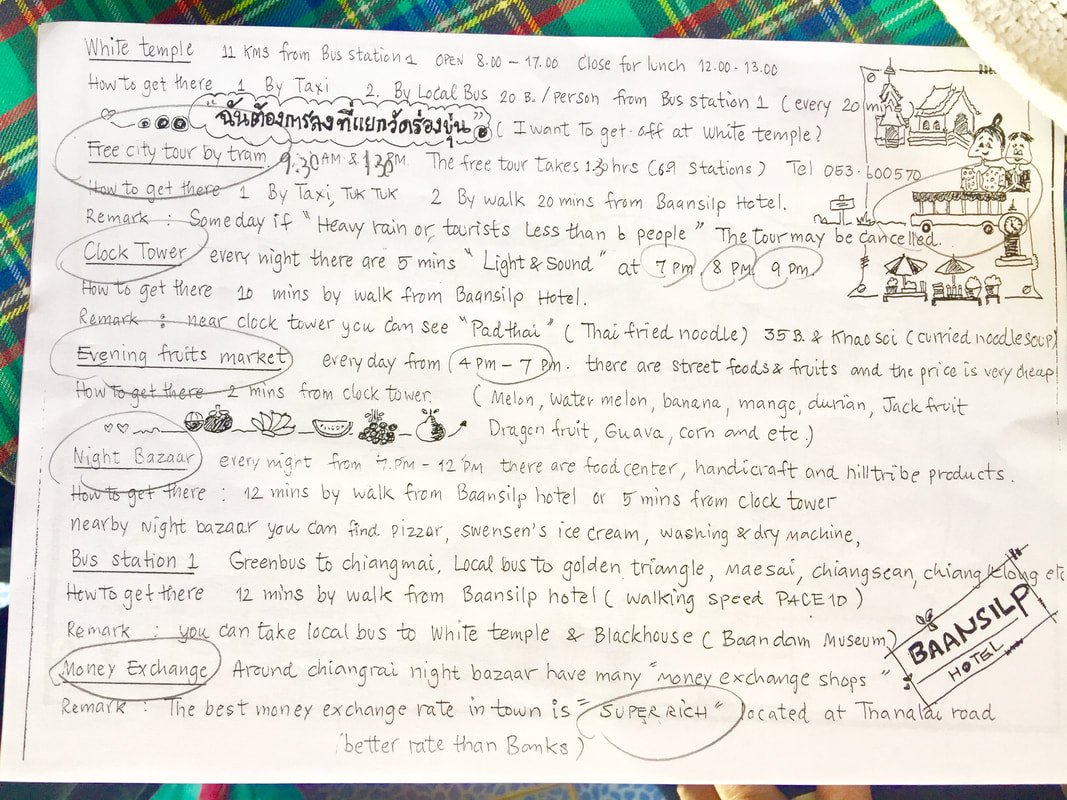 White temple 11 KMS from Bus station 1 OPEN 8.00 - 17.00 Close for lunch 12.00 - 13.00
How to get there 1 By Taxi 2. By Local Bus 20 B./person from Bus station 1 (every 20 mins)
"ฉันต้องการลงที่แยกวัดร่องขุ่น" (I want to get off at White temple?
Free city tour by tram 9.30 AM & 1.30 PM. The free tour takes 1.30 hrs (69 stations) Tel 053-600570
How to get there 1 By Taxi, TUK TUK 2 By walk 20 mins from Baansilp Hotel.
Remark : Someday if "Heavy rain or tourists Less than 6 people" The tour may be cancelled.
Clock Tower every night there are 5 mins "Light & Sound" at 7 PM, 8 PM, 9 PM.
How to get there 10 mins by walk from Baansilp Hotel.
Remark : near clock tower you can see "Padthai" (Thai fried noodle) 35 B. & Khao soi (curried noodle soup)
Evening fruits market every day from (4 PM - 7 PM. there are street foods & fruits and the price is very cheap!
How to get there 2 mins from clock tower. (Melon, water melon, banana, mango, durian, Jack fruit
Dragon fruit, Guava, corn and etc.)
Night Bazaar every night from 7.PM - 12 PM there are food center, handicraft and hilltribe products.
How to get there : 12 mins by walk from Baansilp hotel or 5 mins from clock tower
nearby night bazaar you can find pizzar, swensen's ice cream, washing & dry machine,
Bus station 1 Greenbus to chiangmai, Local bus to golden triangle, maesai, chiangsean, chiang klong etc
How to get there 12 mins by walk from Baansilp hotel (walking speed PACE 10)
Remark : you can take local bus to White temple & Blackhouse (Baandam Museum)
BAANSILP
HOTEL
Money Exchange Around chiangrai night bazaar have many "money exchange shops"
Remark : The best money exchange rate in town is "SUPER RICH" located at Thanalai road
(better rate than Banks)